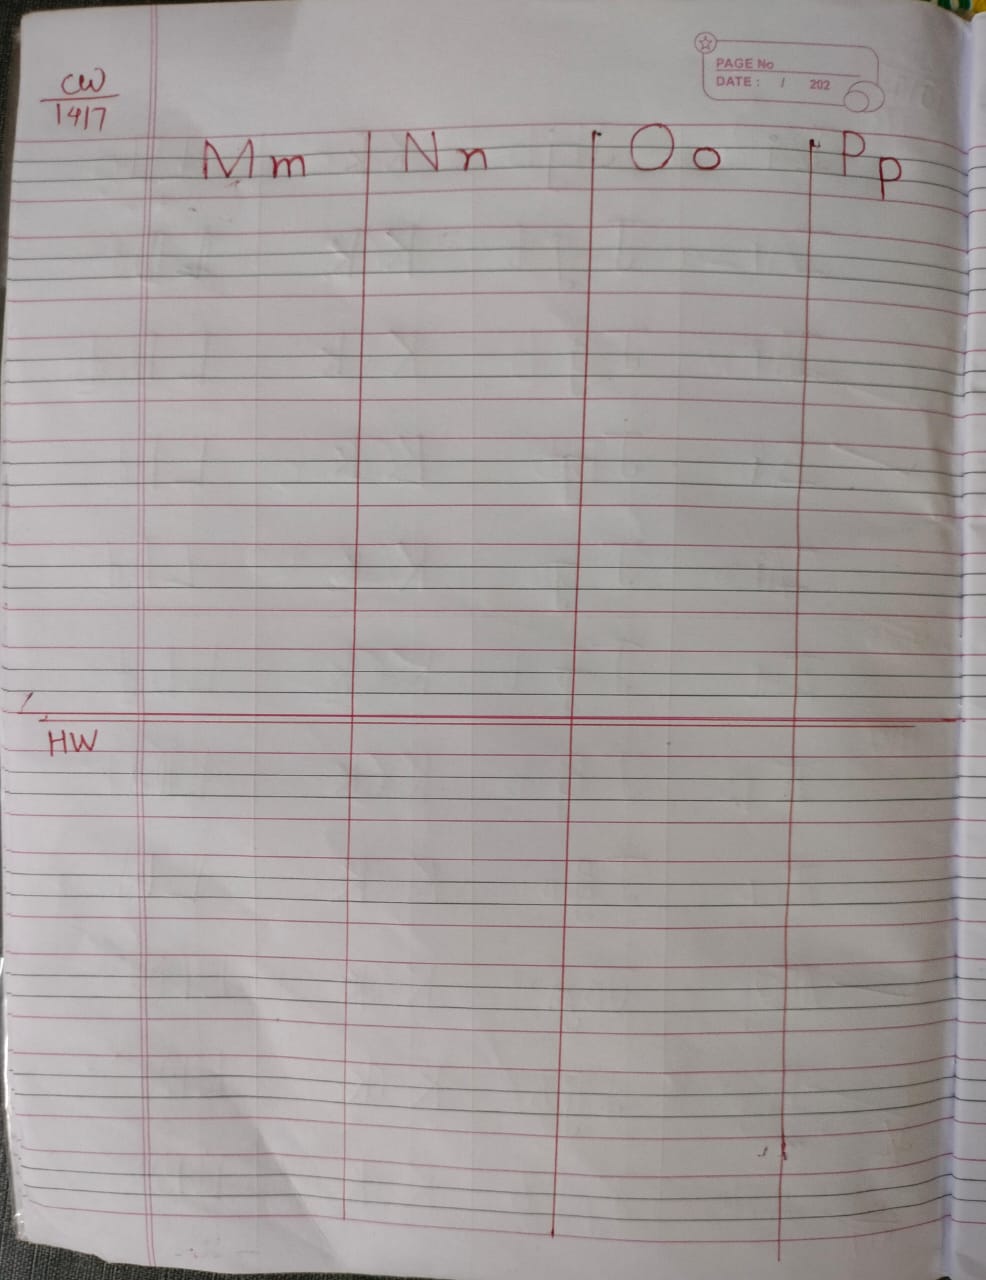 PAGE No
DATE : / 202
CW
14/7
Mm Nn Oo Pp
HW